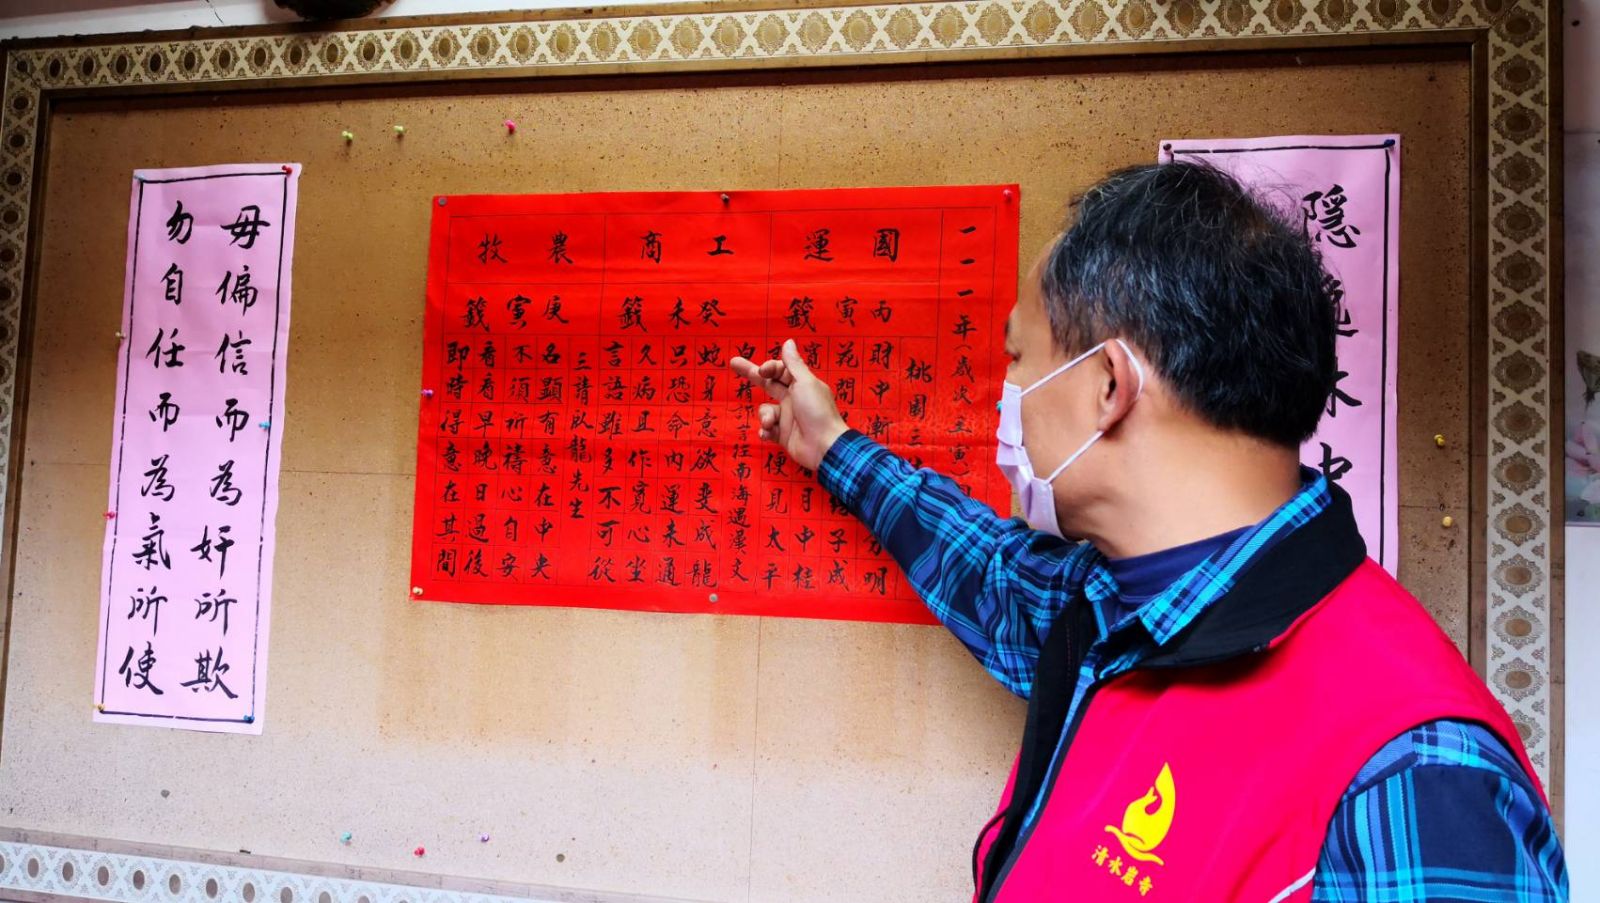 隱
一一一年(歲次壬寅
國運
丙寅籤
桃園三
財中漸 明
花開 子成
月中桂
便見太平
工商
癸未籤
精詐言往南海遇漢文
蛇身意欲變成龍
只恐命內運未通
久病且作寬心坐
言語雖多不可從
農牧
庚寅籤
三請臥龍先生
名顯有意在中央
不須祈禱心自安
看看早晚日過後
即時得意在其間
毋偏信而為奸所欺
勿自任而為氣所使
清水岩寺